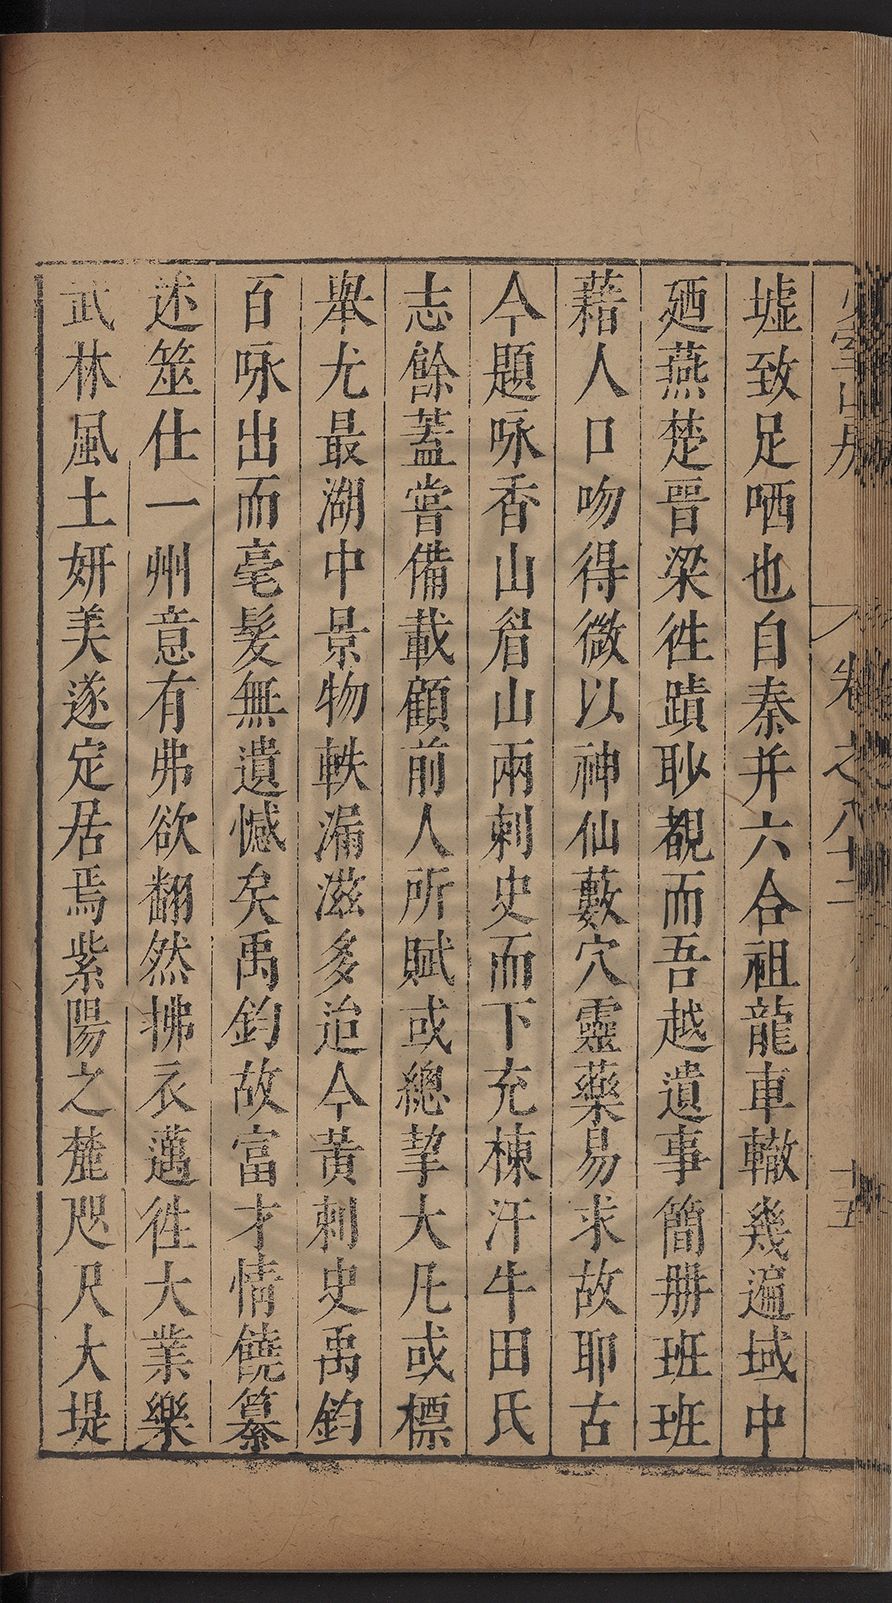 少室山房 卷之八十二 十五
墟致足哂也自秦并六合祖龍車轍幾遍域中
廼燕楚晋梁徃蹟耿覩而吾越遺事簡册班班
藉人口吻得微以神仙藪穴靈藥易求故耶古
今題咏香山眉山兩刺史而下充棟汗牛田氏
志餘蓋嘗備載顧前人所賦或總挈大凡或標
舉尤最湖中景物軼漏滋多迨今黃刺史禹鈞
百咏出而毫髮無遺憾矣禹鈞故富才情饒纂
述筮仕一州意有弗欲翻然拂衣邁徃大業樂
武林風土妍美遂定居焉紫陽之麓咫尺大堤